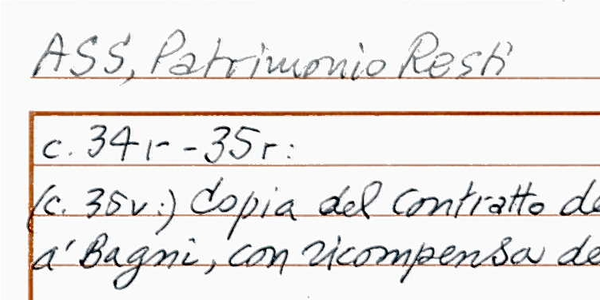 ASS, Patrimonio Resti
c. 34r - 35r:
(c. 35v:) Copia del Contratto de
a' Bagni, con ricompensa de